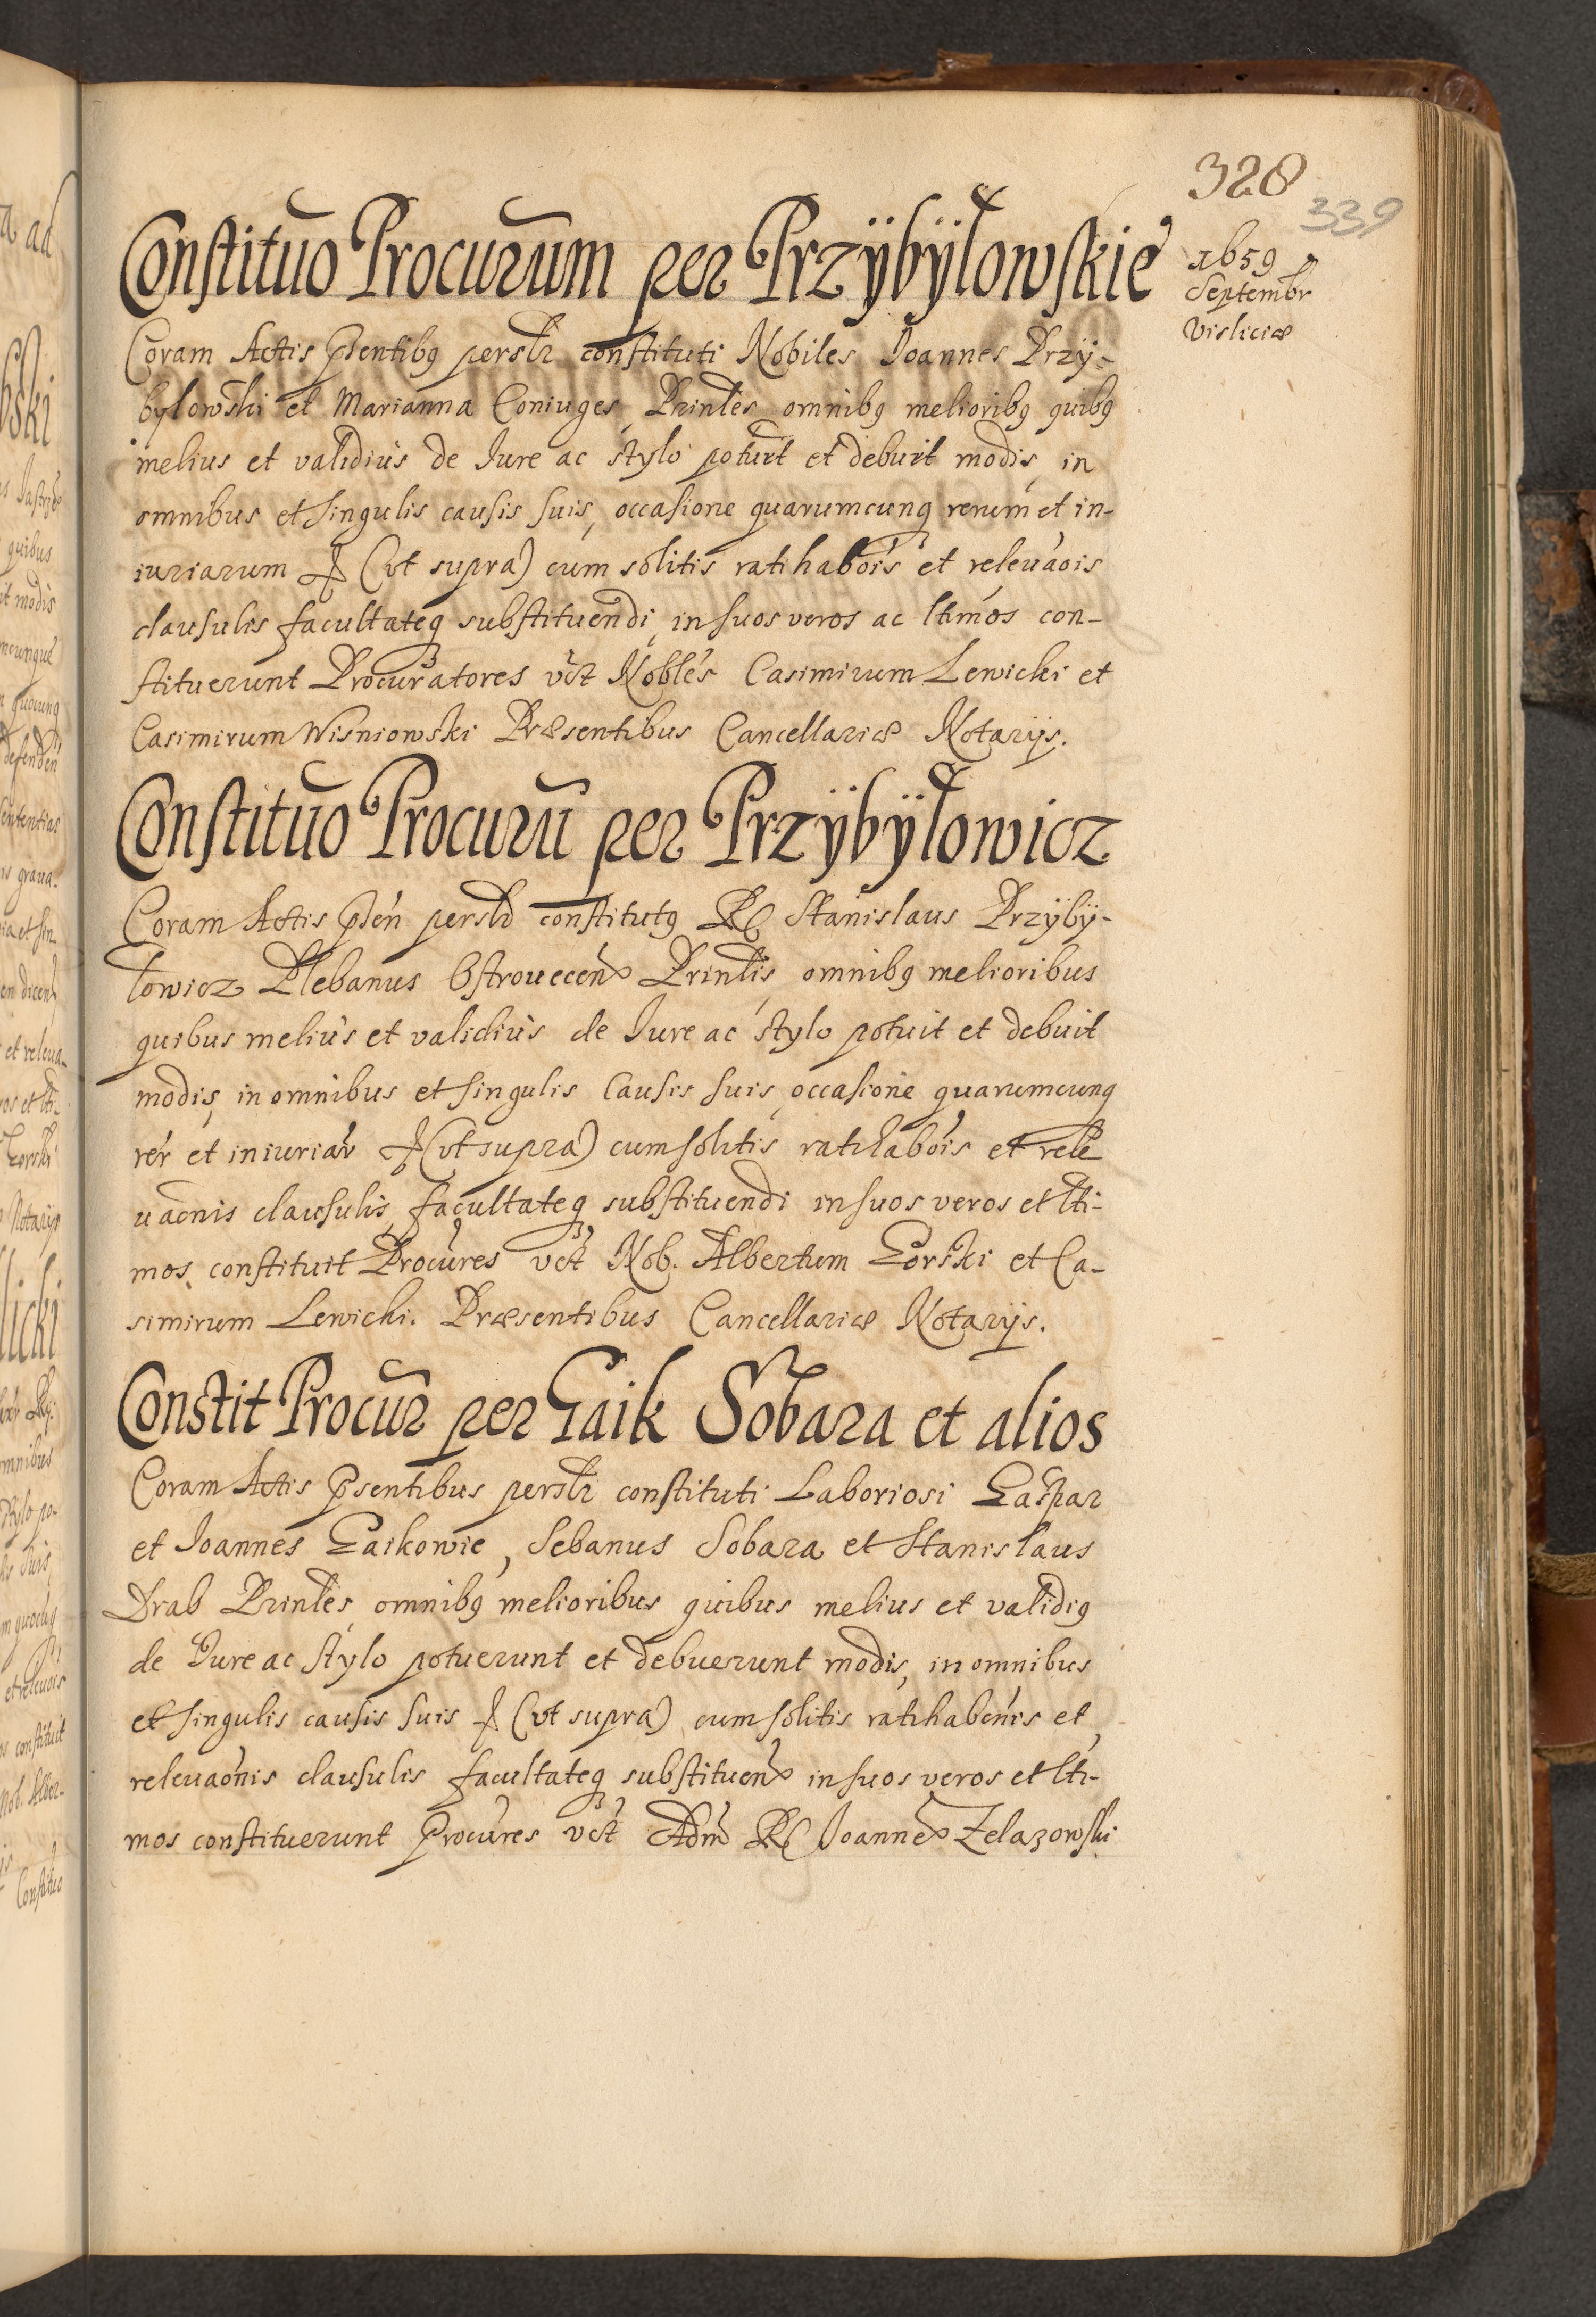 328
339
1659
Septembr
Visliciæ
Constituo Procurum per Przÿbÿłowskie
Coram Actis pñtibq persłr constituti Nobiles Joannes Przÿ-
bylowski et Marianna Coniuges Prinles omnibq melioribq quibq
melius et validius de Jure ac stylo poturt et debuit modis, in
omnibus et singulis causis suis, occasione quarumcunq rerum et in-
iuriarum (vt supra) cum solitis ratihabois et releuaois
clausulis facultateq substituendi, in suos veros ac ltimos con-
stituerunt Procuratores vct Nobles Casimirum Lewicki et
Casimirum Wisniowski Præsentibus Cancellariæ Notarÿs.
Constituo Procuru per Przÿbÿłowicz
Coram Actis psen persłr constitutq R Stanislaus Przÿbÿ-
łowicz Plebanus Ostrouecen Prinlis omnibq melioribus
quibus melius et validius de Jure ac stylo potuit et debuit
modis, in omnibus et singulis Causis suis, occasione quarumcunq
rer et iniuriar (vt supra) cum solitis ratihabois et rele
uaonis clausulis, facultateq substituendi in suos veros et lti-
mos, constituit Procures vct Nob. Albertum Gorski et Ca-
simirum Lewicki. Præsentibus Cancellariæ Notarÿs.
Constit Procur per Gaik Sobara et alios
Coram Actis psentibus persłr constituti Laboriosi Gaspar
et Joannes Gaikowie, Sebanus Sobara et Stanislaus
Drab Prinles omnibq melioribus quibus melius et validiq
de Jure ac stylo potuerunt et debuerunt modis, in omnibus
et singulis causis suis (vt supra) cum solitis ratihabonis et
releuaonis clausulis facultateq substituen in suos veros et lti-
mos constituerunt Procures vct Adm R Joannem Zelazowski